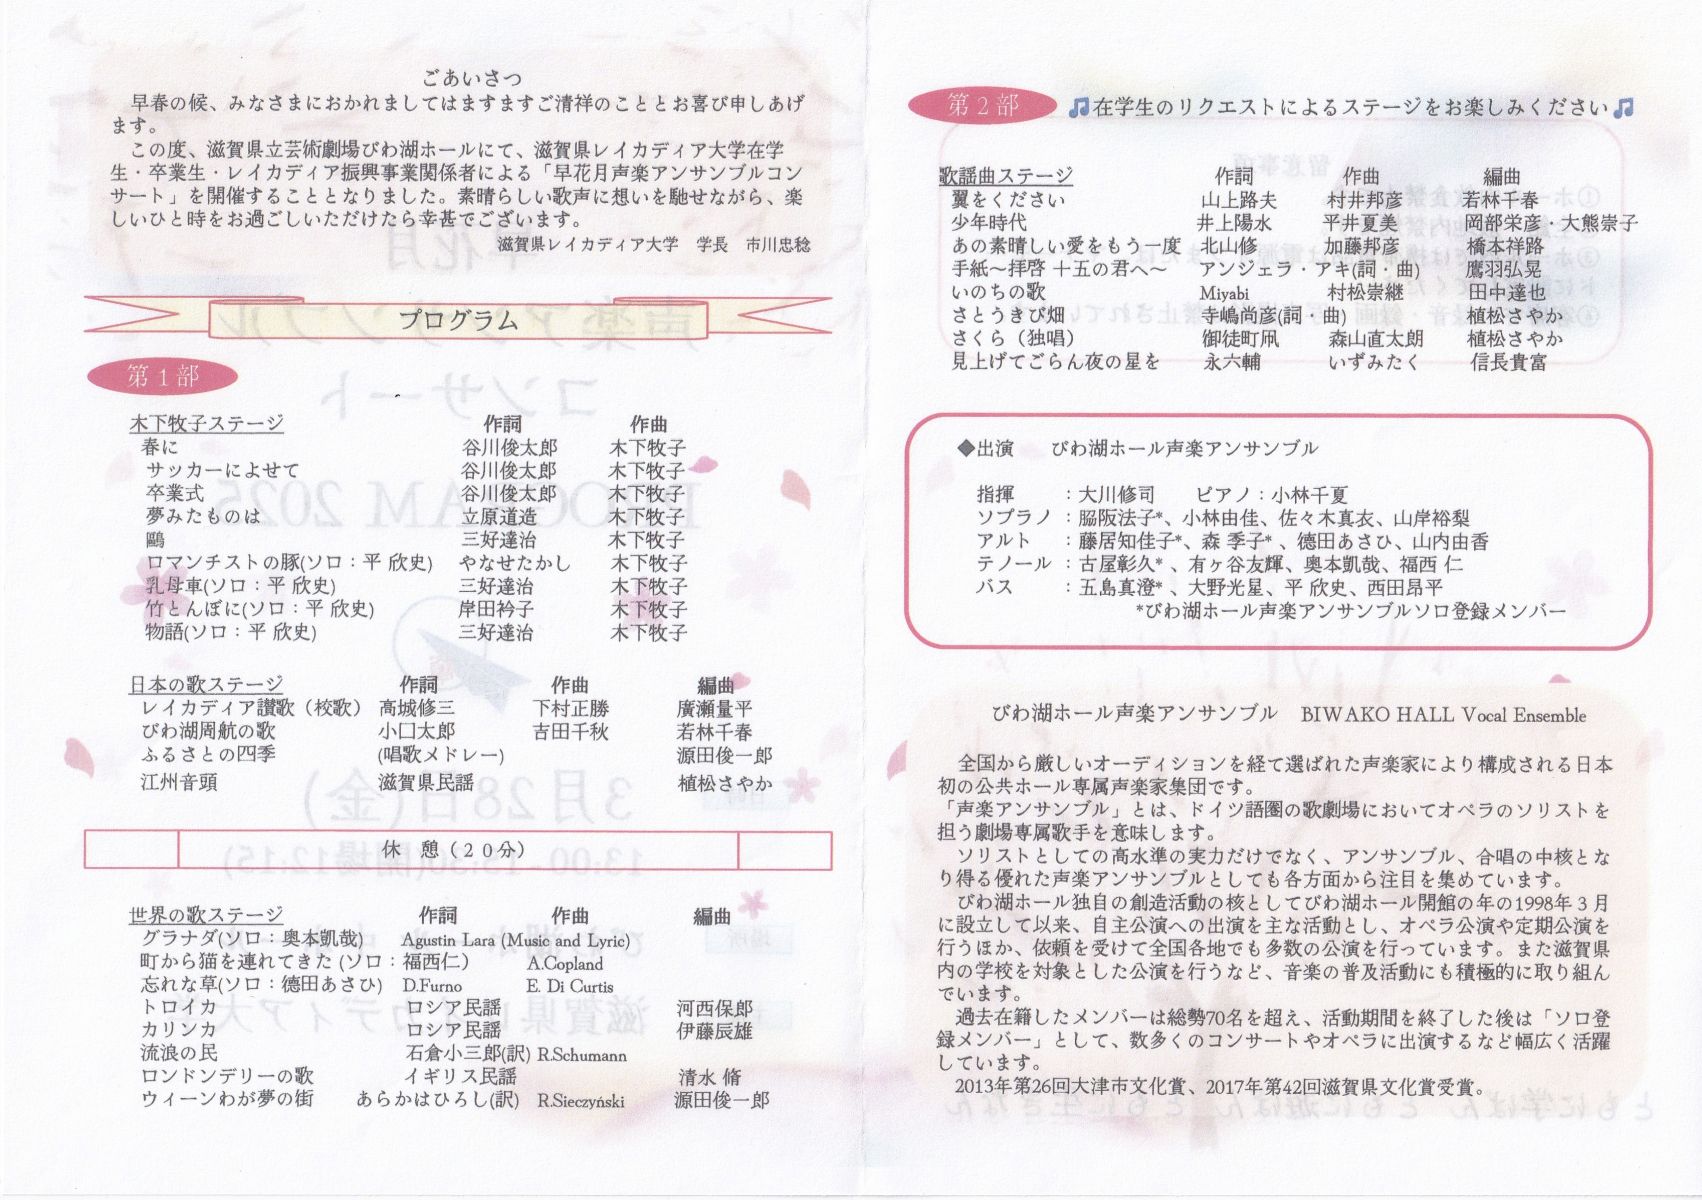 ごあいさつ
早春の候、みなさまにおかれましてはますますご清祥のこととお喜び申しあげ
ます。
この度、滋賀県立芸術劇場びわ湖ホールにて、滋賀県レイカディア大学在学
生・卒業生・レイカディア振興事業関係者による「早花月声楽アンサンブルコン
サート」を開催することとなりました。素晴らしい歌声に想いを馳せながら、楽
しいひと時をお過ごしいただけたら幸甚でございます。
滋賀県レイカディア大学　学長　市川忠稔
プログラム
第１部
木下牧子ステージ　作詞　作曲
春に　谷川俊太郎　木下牧子
サッカーによせて　谷川俊太郎　木下牧子
卒業式　谷川俊太郎　木下牧子
夢みたものは　立原道造　木下牧子
鷗　三好達治　木下牧子
ロマンチストの豚(ソロ：平 欣史)　やなせたかし　木下牧子
乳母車(ソロ：平 欣史)　三好達治　木下牧子
竹とんぼに(ソロ：平 欣史)　岸田衿子　木下牧子
物語(ソロ：平 欣史)　三好達治　木下牧子
日本の歌ステージ　作詞　作曲　編曲
レイカディア讃歌（校歌）　高城修三　下村正勝　廣瀬量平
びわ湖周航の歌　小口太郎　吉田千秋　若林千春
ふるさとの四季　(唱歌メドレー)　源田俊一郎
江州音頭　滋賀県民謡　植松さやか
休　憩（２０分）
世界の歌ステージ　作詞　作曲　編曲
グラナダ(ソロ：奥本凱哉)　Agustin Lara (Music and Lyric)
町から猫を連れてきた (ソロ：福西仁）　A.Copland
忘れな草(ソロ：德田あさひ)　D.Furno　E. Di Curtis
トロイカ　ロシア民謡　河西保郎
カリンカ　ロシア民謡　伊藤辰雄
流浪の民　石倉小三郎(訳) R.Schumann
ロンドンデリーの歌　イギリス民謡　清水 脩
ウィーンわが夢の街　あらかはひろし(訳)　R.Sieczyński　源田俊一郎
第２部　🎵在学生のリクエストによるステージをお楽しみください🎵
歌謡曲ステージ　作詞　作曲　編曲
翼をください　山上路夫　村井邦彦　若林千春
少年時代　井上陽水　平井夏美　岡部栄彦・大熊崇子
あの素晴しい愛をもう一度　北山修　加藤邦彦　橋本祥路
手紙～拝啓 十五の君へ～　アンジェラ・アキ(詞・曲)　鷹羽弘晃
いのちの歌　Miyabi　村松崇継　田中達也
さとうきび畑　寺嶋尚彦(詞・曲)　植松さやか
さくら（独唱）　御徒町凧　森山直太朗　植松さやか
見上げてごらん夜の星を　永六輔　いずみたく　信長貴富
◆出演　びわ湖ホール声楽アンサンブル
指揮　：大川修司　ピアノ：小林千夏
ソプラノ：脇阪法子*、小林由佳、佐々木真衣、山岸裕梨
アルト　：藤居知佳子*、森 季子* 、德田あさひ、山内由香
テノール：古屋彰久* 、有ヶ谷友輝、奥本凱哉、福西 仁
バス　：五島真澄* 、大野光星、平 欣史、西田昂平
*びわ湖ホール声楽アンサンブルソロ登録メンバー
びわ湖ホール声楽アンサンブル　BIWAKO HALL Vocal Ensemble
全国から厳しいオーディションを経て選ばれた声楽家により構成される日本
初の公共ホール専属声楽家集団です。
「声楽アンサンブル」とは、ドイツ語圏の歌劇場においてオペラのソリストを
担う劇場専属歌手を意味します。
ソリストとしての高水準の実力だけでなく、アンサンブル、合唱の中核とな
り得る優れた声楽アンサンブルとしても各方面から注目を集めています。
びわ湖ホール独自の創造活動の核としてびわ湖ホール開館の年の1998年３月
に設立して以来、自主公演への出演を主な活動とし、オペラ公演や定期公演を
行うほか、依頼を受けて全国各地でも多数の公演を行っています。また滋賀県
内の学校を対象とした公演を行うなど、音楽の普及活動にも積極的に取り組ん
でいます。
過去在籍したメンバーは総勢70名を超え、活動期間を終了した後は「ソロ登
録メンバー」として、数多くのコンサートやオペラに出演するなど幅広く活躍
しています。
2013年第26回大津市文化賞、2017年第42回滋賀県文化賞受賞。